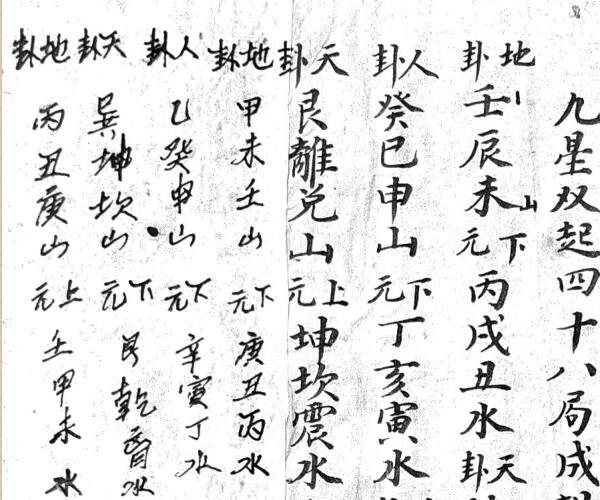 九星双起四十八局成
地卦壬辰未山下元丙戌丑水天卦
人卦癸巳申山下元丁亥寅水
天卦艮離兑山上元坤坎震水
地卦甲未壬山下元庚丑丙水
人卦乙癸申山下元辛寅丁水
天卦巽坤坎山下元艮乾水
地卦丙丑庚山上元壬甲未水